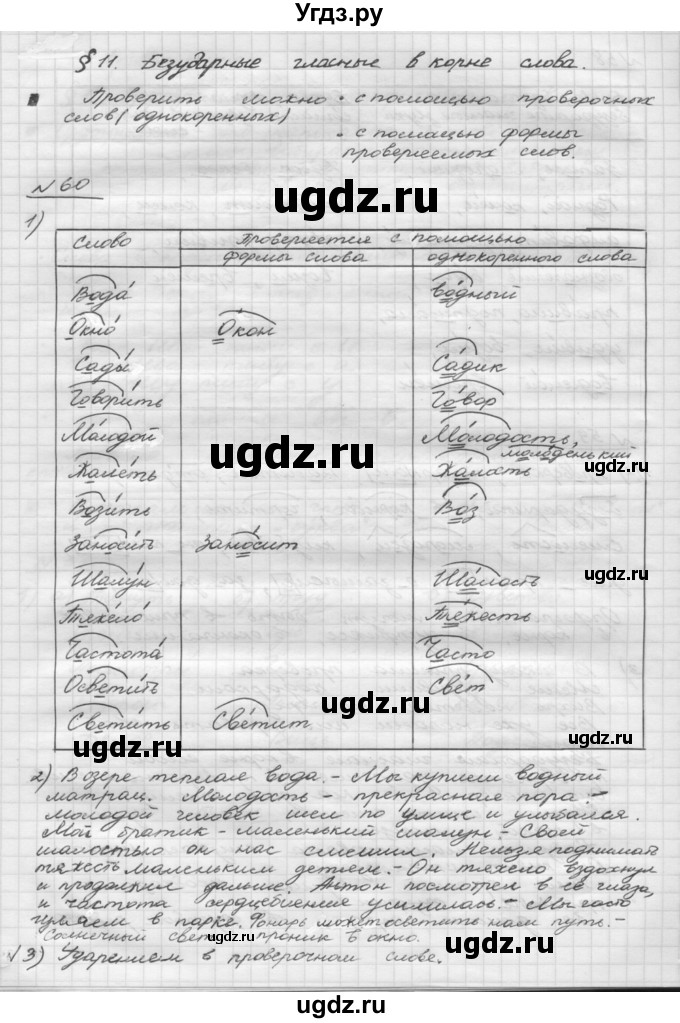 Угдз.ру
§ 11. Безударные гласные в корне слова.
Проверить можно • с помощью проверочных
слов (однокоренных)
• с помощью формы
проверяемых слов.
№ 60
1)
Слово Проверяется с помощью
формы слова однокоренного слова
Вода́ во́дный
Окно́ О́кон
Сады́ Са́дик
Говори́ть Го́вор
Молодой Мо́лодость,
моло́денький
Жале́ть Жа́лость
Вози́ть Во́з
Заноси́ть Зано́сит
Шалу́н Ша́лость
Тяжело́ Тя́жесть
Частота́ Ча́сто
Осветить Све́т
Свети́ть Све́тит
2) В озере теплая вода. - Мы купили водный
матрац. Молодость - прекрасная пора. -
Молодой человек шел по улице и улыбался.
Мой братик - маленький шалун. - Своей
шалостью он нас смешил. Нельзя поднимать
тяжесть маленьким детям. - Он тяжело вздохнул
и продолжил дальше. Антон посмотрел в её глаза,
и частота сердцебиения усилилась. - Мы часто
гуляем в парке. Фонарь может осветить нам путь. -
Солнечный свет проник в окно.
3) Ударением в проверочном слове.
ugdz.ru
ugdz.ru
ugdz.ru
ugdz.ru
ugdz.ru
ugdz.ru
ugdz.ru
ugdz.ru
ugdz.ru
ugdz.ru
ugdz.ru